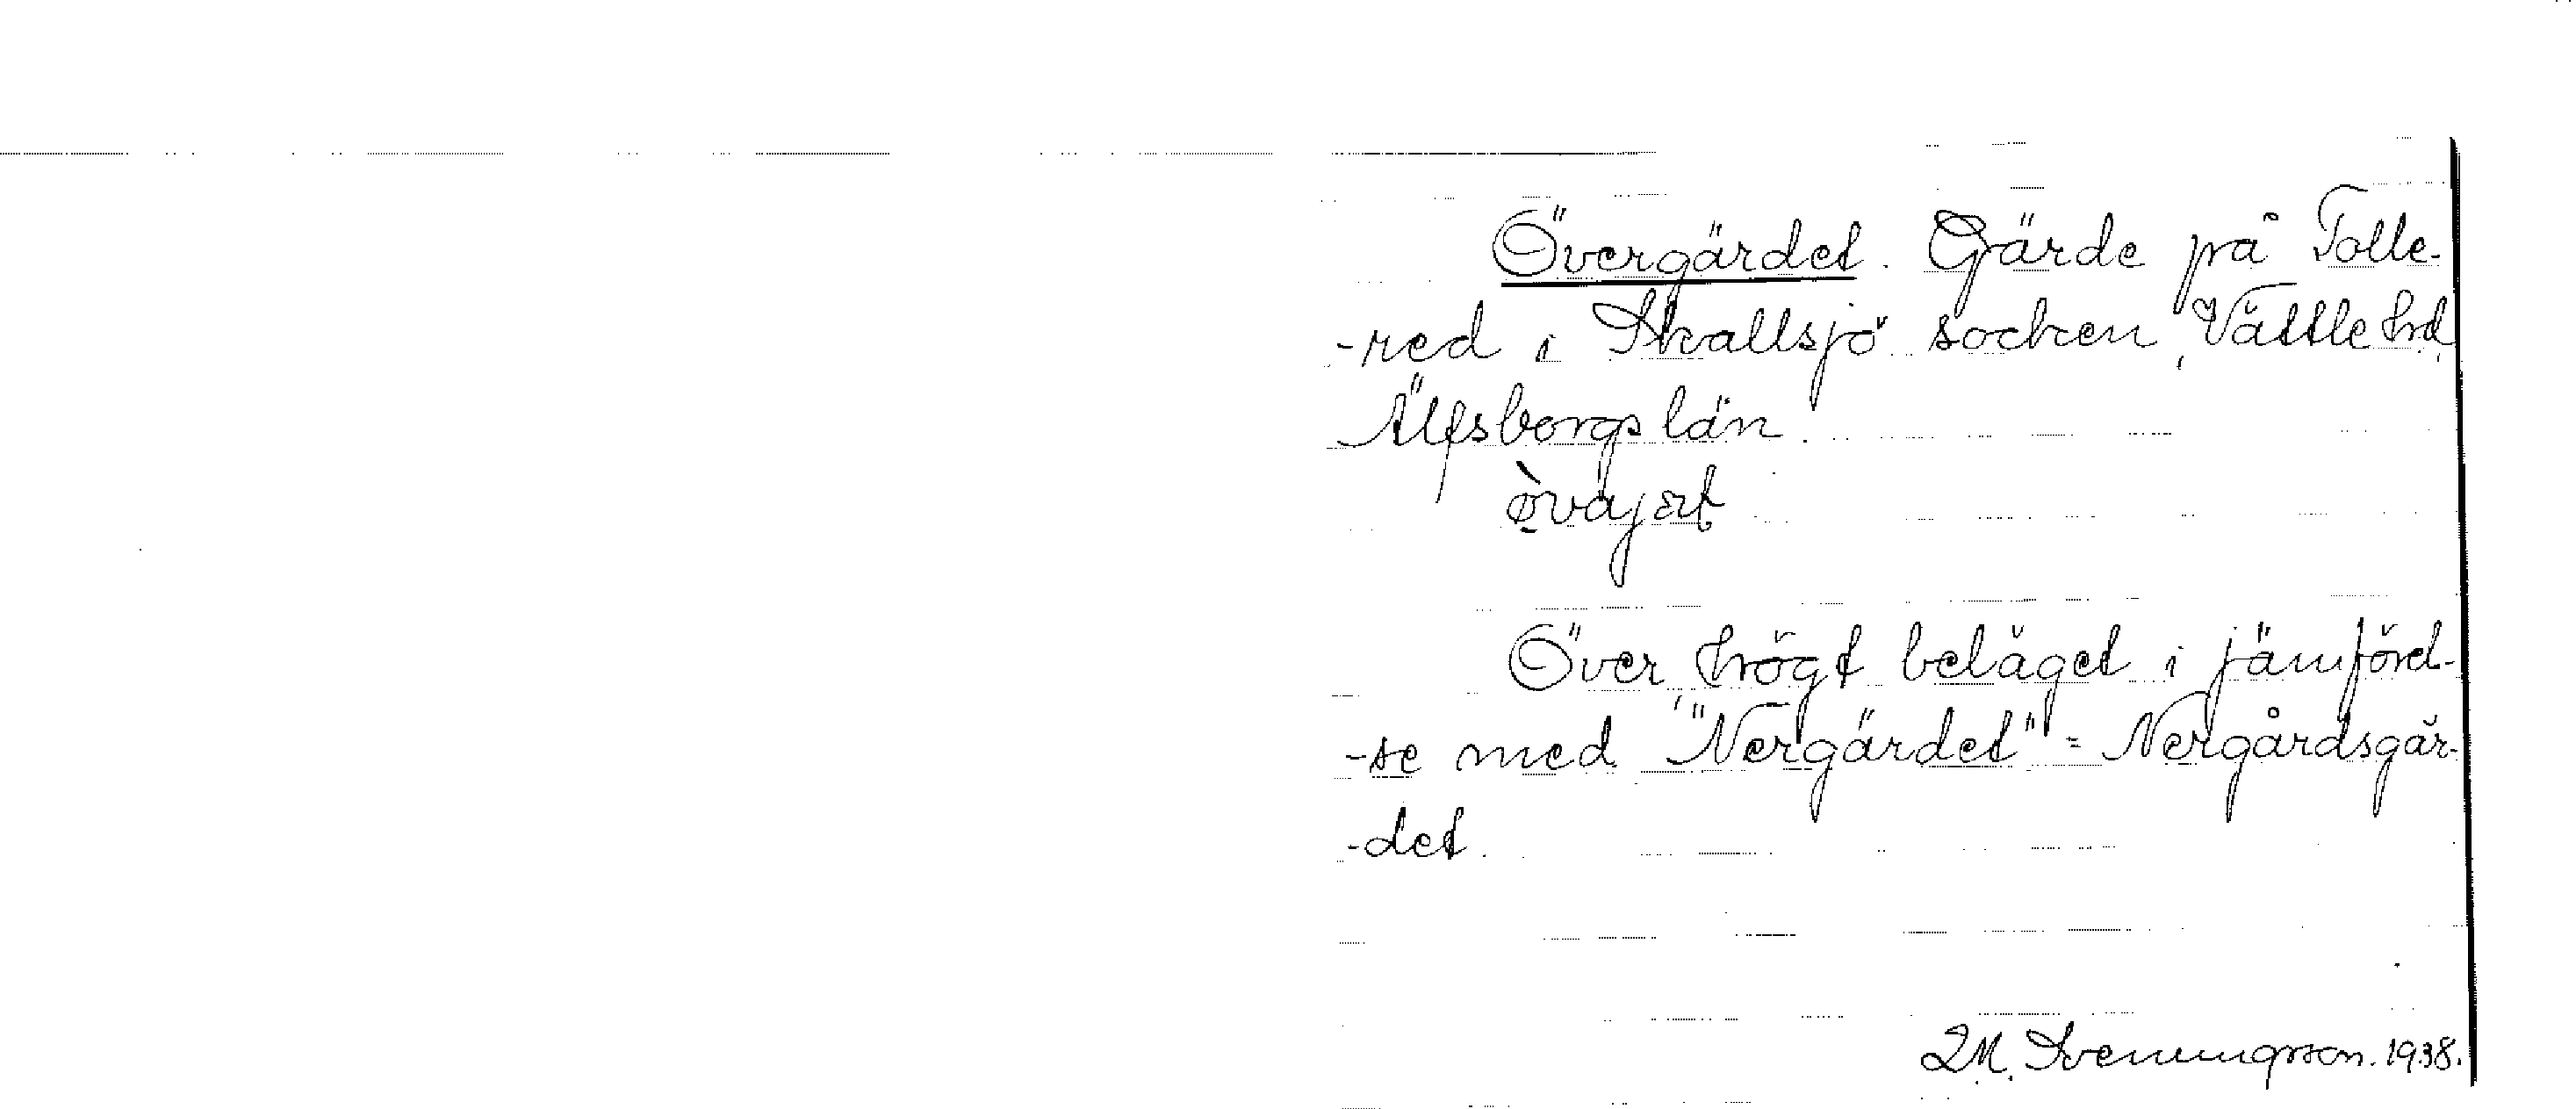 Övergärdet. Gärde på Tolle-
-red i Skallsjö socken, Vättle hrd,
Älfsborgs län.
òvajat
Över, högt beläget i jämförel-
-se med "Nergärdet" = Nergårdsgär-
-det.
Svenungsson. 1938.